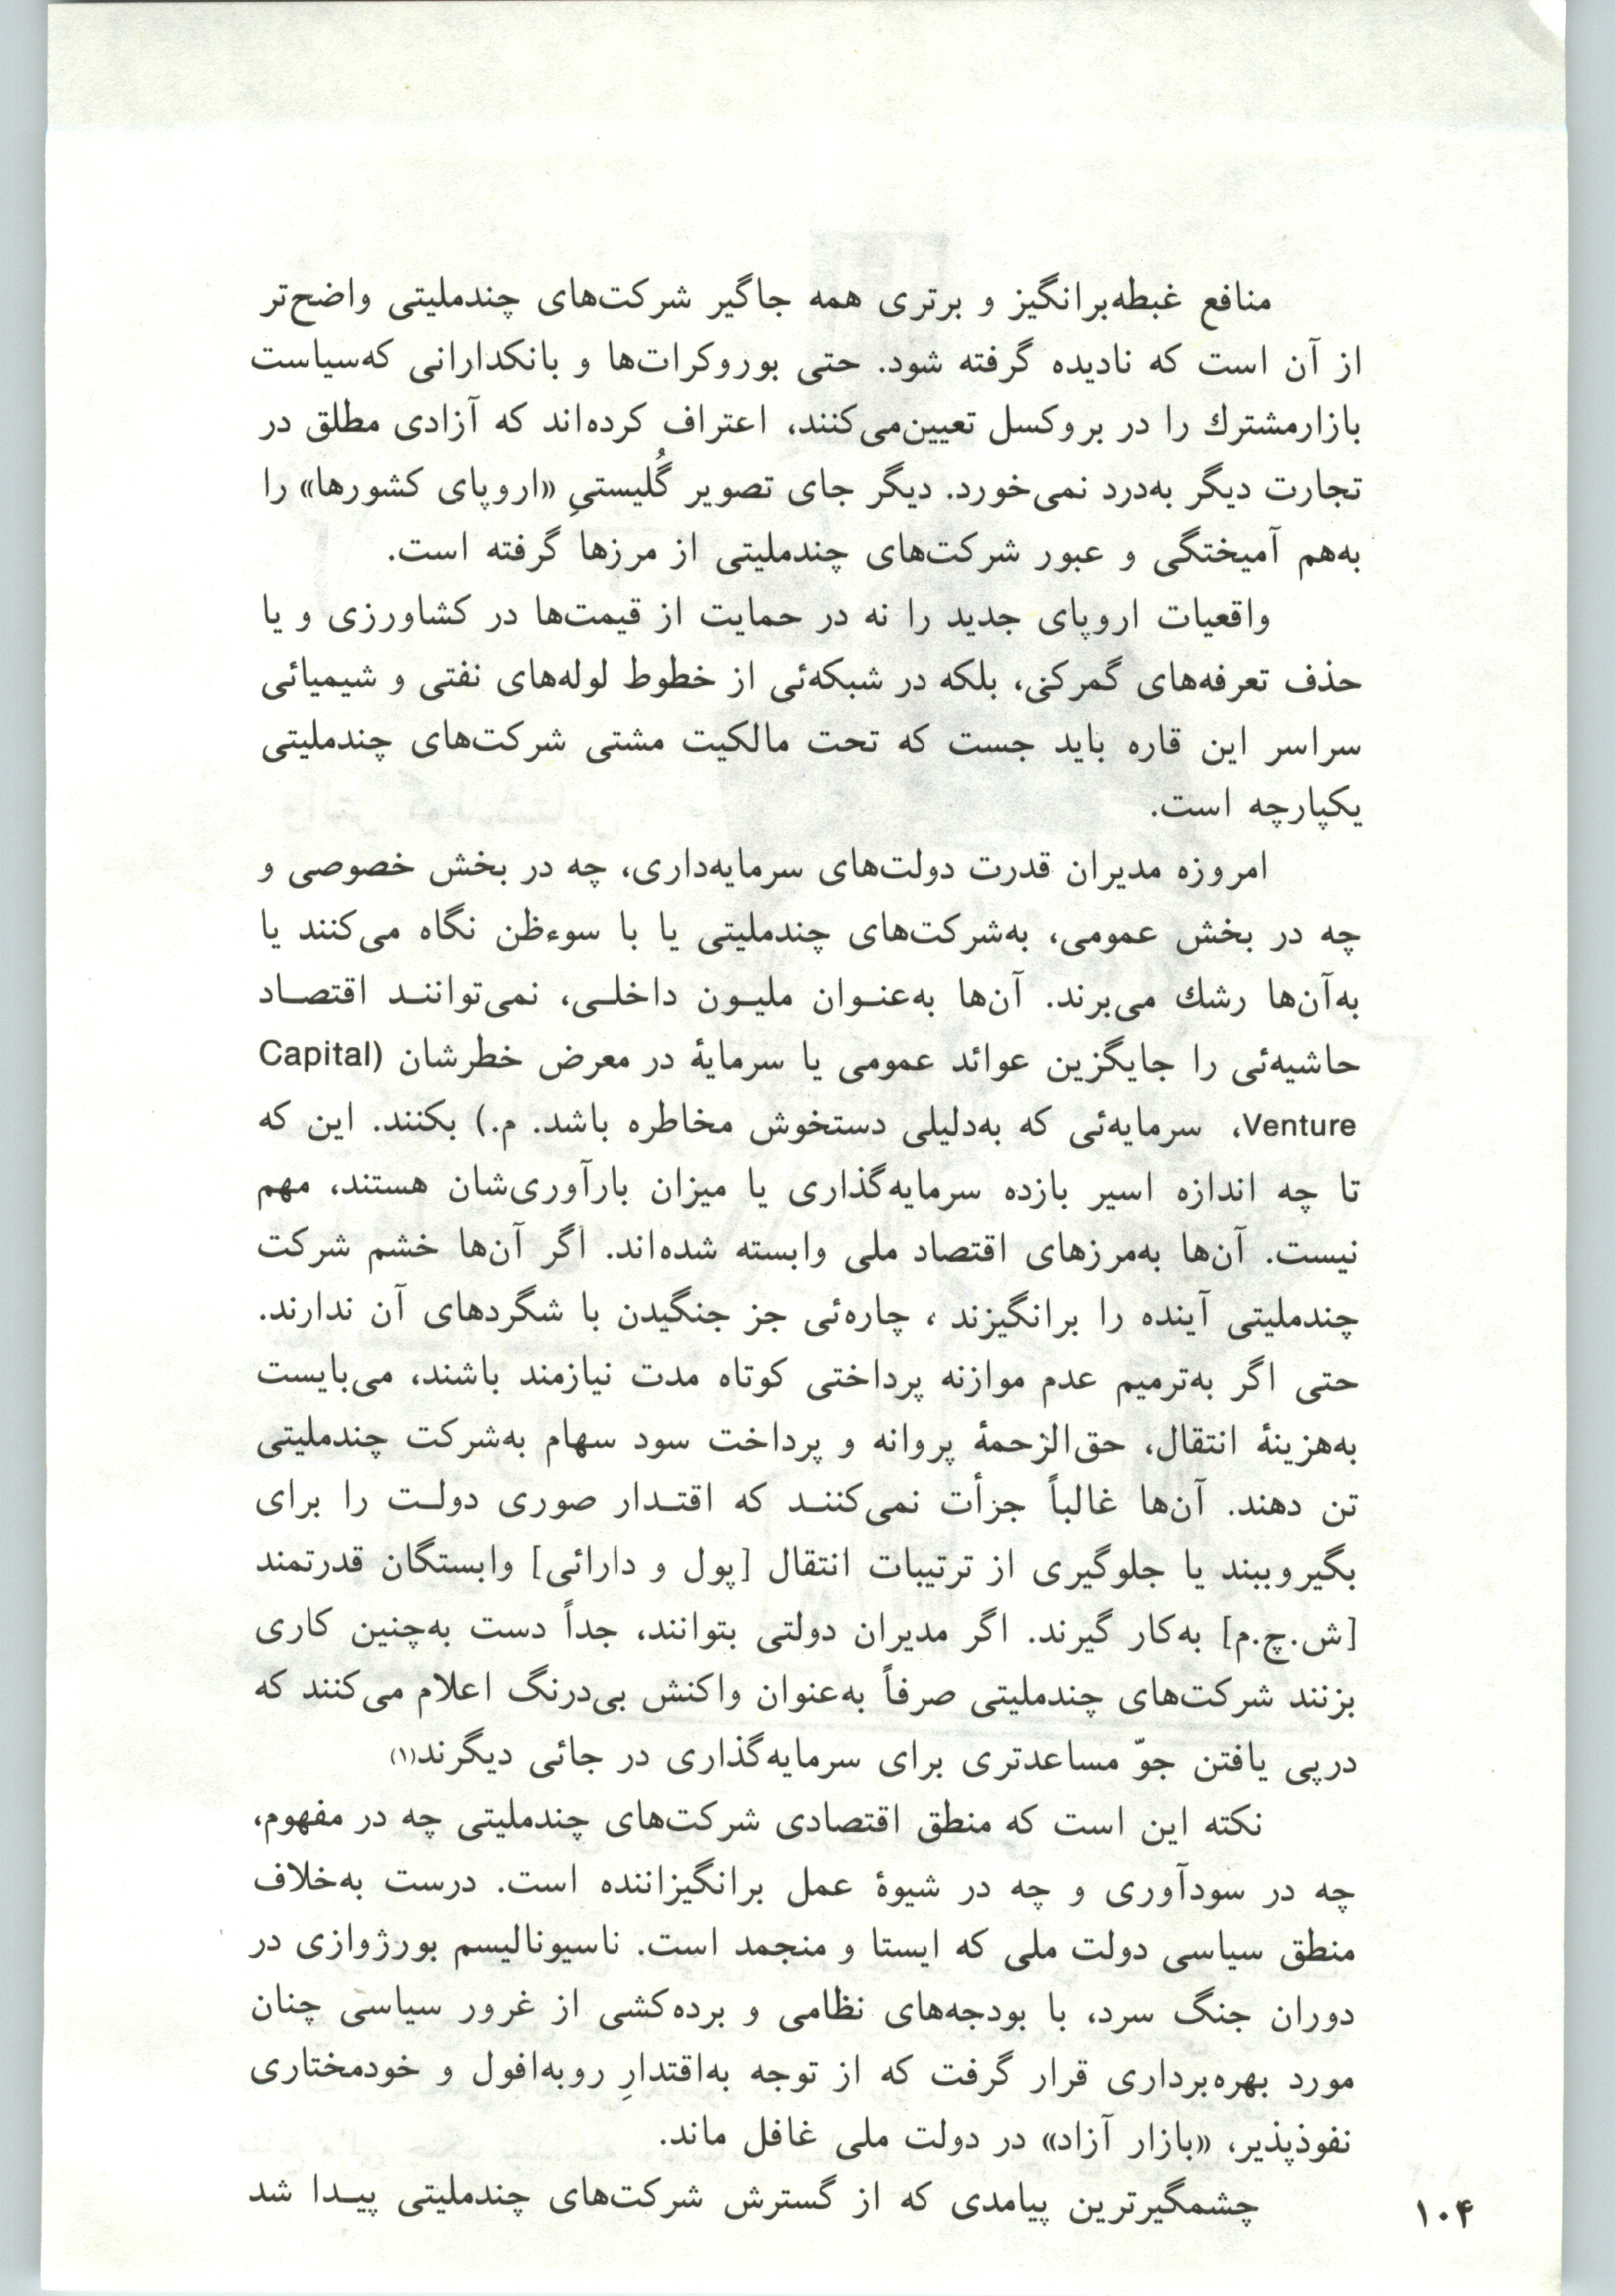 منافع غبطه‌برانگیز و برتری همه جاگیر شرکت‌های چندملیتی واضح‌تر
از آن است که نادیده گرفته شود. حتی بوروکرات‌ها و بانکدارانی که‌سیاست
بازارمشترك را در بروکسل تعیین‌می‌کنند، اعتراف کرده‌اند که آزادی مطلق در
تجارت دیگر به‌درد نمی‌خورد. دیگر جای تصویر گُلیستیِ «اروپای کشورها» را
به‌هم آمیختگی و عبور شرکت‌های چندملیتی از مرزها گرفته است.
واقعیات اروپای جدید را نه در حمایت از قیمت‌ها در کشاورزی و یا
حذف تعرفه‌های گمرکی، بلکه در شبکه‌ئی از خطوط لوله‌های نفتی و شیمیائی
سراسر این قاره باید جست که تحت مالکیت مشتی شرکت‌های چندملیتی
یکپارچه است.
امروزه مدیران قدرت دولت‌های سرمایه‌داری، چه در بخش خصوصی و
چه در بخش عمومی، به‌شرکت‌های چندملیتی یا با سوءظن نگاه می‌کنند یا
به‌آن‌ها رشك می‌برند. آن‌ها به‌عنـوان ملیـون داخلـی، نمی‌تواننـد اقتصـاد
حاشیه‌ئی را جایگزین عوائد عمومی یا سرمایهٔ در معرض خطرشان (Capital
Venture، سرمایه‌ئی که به‌دلیلی دستخوش مخاطره باشد. م.) بکنند. این که
تا چه اندازه اسیر بازده سرمایه‌گذاری یا میزان بارآوری‌شان هستند، مهم
نیست. آن‌ها به‌مرزهای اقتصاد ملی وابسته شده‌اند. اگر آن‌ها خشم شرکت
چندملیتی آینده را برانگیزند ، چاره‌ئی جز جنگیدن با شگردهای آن ندارند.
حتی اگر به‌ترمیم عدم موازنه پرداختی کوتاه مدت نیازمند باشند، می‌بایست
به‌هزینهٔ انتقال، حق‌الزحمهٔ پروانه و پرداخت سود سهام به‌شرکت چندملیتی
تن دهند. آن‌ها غالباً جرأت نمی‌کننـد که اقتـدار صوری دولـت را برای
بگیروببند یا جلوگیری از ترتیبات انتقال [پول و دارائی] وابستگان قدرتمند
[ش.چ.م] به‌کار گیرند. اگر مدیران دولتی بتوانند، جداً دست به‌چنین کاری
بزنند شرکت‌های چندملیتی صرفاً به‌عنوان واکنش بی‌درنگ اعلام می‌کنند که
درپی یافتن جوّ مساعدتری برای سرمایه‌گذاری در جائی دیگرند(۱)
نکته این است که منطق اقتصادی شرکت‌های چندملیتی چه در مفهوم،
چه در سودآوری و چه در شیوهٔ عمل برانگیزاننده است. درست به‌خلاف
منطق سیاسی دولت ملی که ایستا و منجمد است. ناسیونالیسم بورژوازی در
دوران جنگ سرد، با بودجه‌های نظامی و برده‌کشی از غرور سیاسی چنان
مورد بهره‌برداری قرار گرفت که از توجه به‌اقتدارِ روبه‌افول و خودمختاری
نفوذپذیر، «بازار آزاد» در دولت ملی غافل ماند.
چشمگیرترین پیامدی که از گسترش شرکت‌های چندملیتی پیـدا شد
۱۰۴